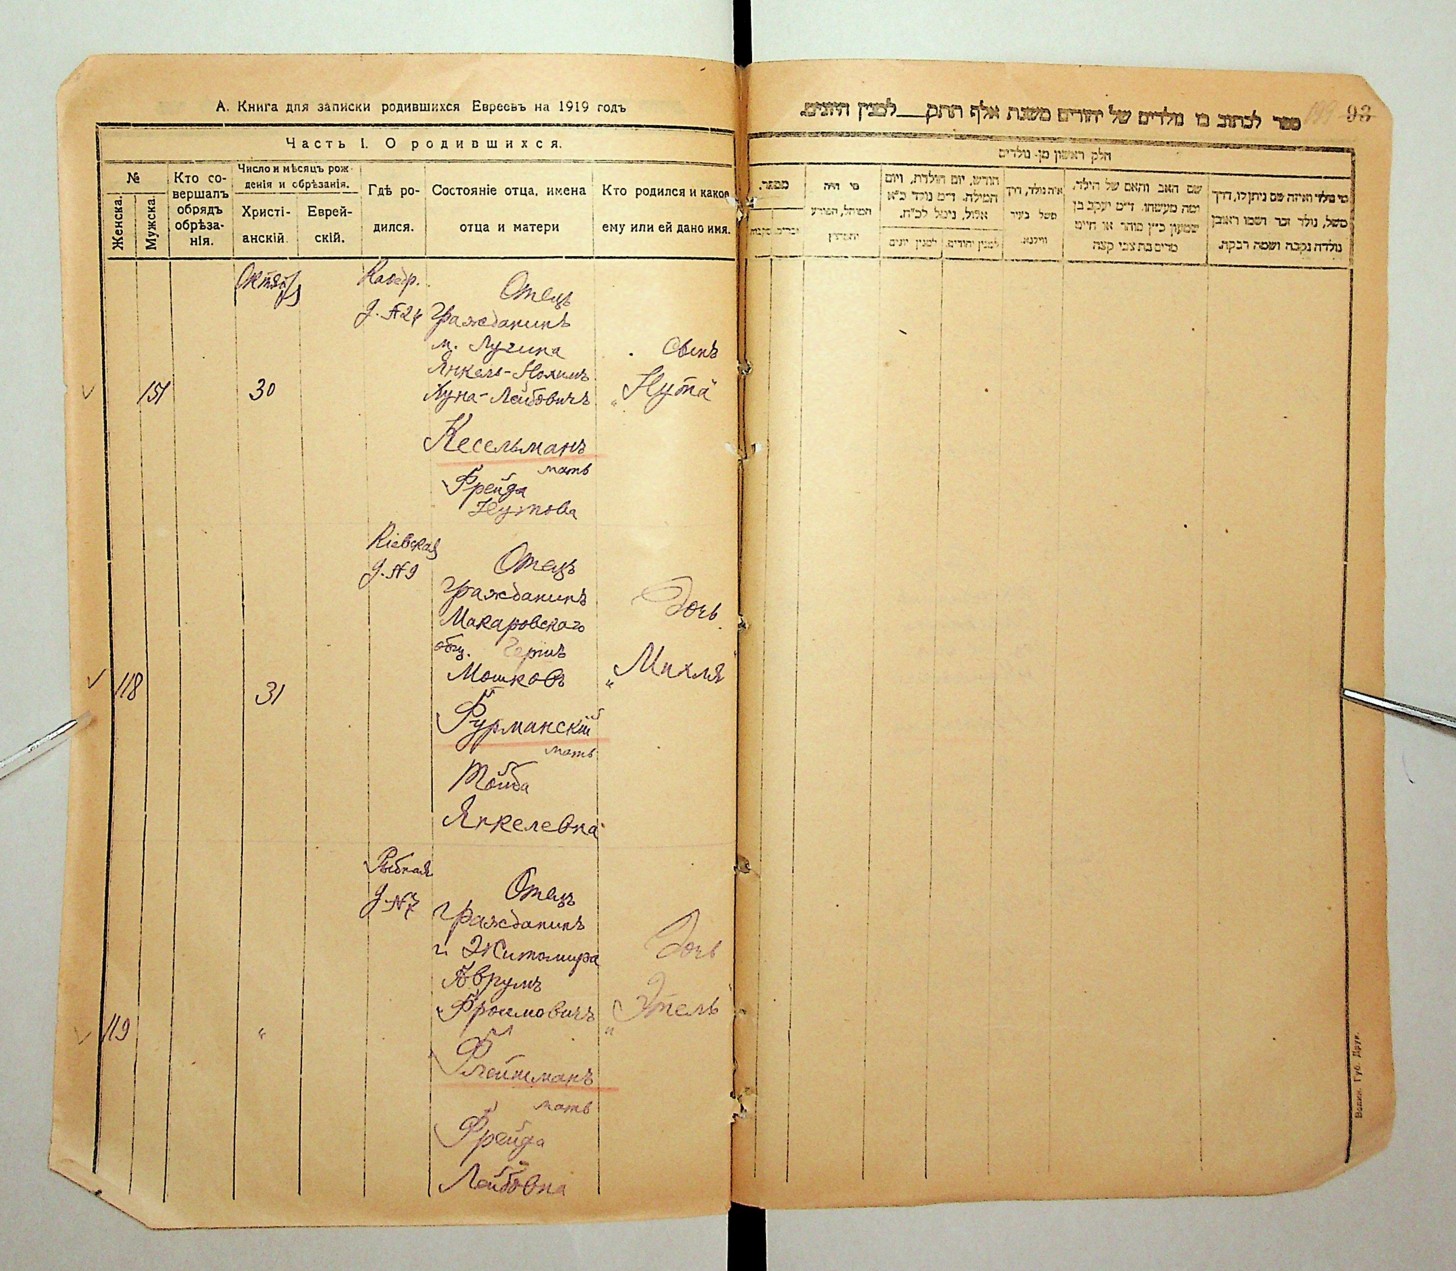 А. Книга для записки родившихся Евреевъ на 1919 годъ
Часть I. О родившихся.
№
Женска.
Мужска.
Кто со-
вершалъ
обрядъ
обрѣза-
нія.
Число и мѣсяцъ рож-
денія и обрѣзанія.
Христі-
анскій.
Еврей-
скій.
Гдѣ ро-
дился.
Состояніе отца, имена
отца и матери
Кто родился и какое
ему или ей дано имя.
151
30
д. №24
Отецъ
Гражданинъ
м. Лугина
Хуна-Лейбовичъ
Кесельманъ
мать
Фрейда
Нутова
Сынъ
„Нута"
118
31
Кіевская
д. №9
Отецъ
Гражданинъ
Макаровскаго
общ. Гершъ
Мошковъ
Фурманскій
мать
Тойба
Янкелевна
Дочь
„Михля
119
„
Рыбная
д. №7
Отецъ
Гражданинъ
г. Житомира
Аврумъ
Фроимовичъ
Флейшманъ
мать
Фрейда
Лейбовна
Дочь
„Этель
ספר לכתוב בו נולדים של יהודים משנת אלף תתק לפנין היונים.
93
חלק ראשון מן נולדים
מספר.
מי היה
המוהל, הפורע
חודש, יום הולדת, ויום
המילה. ד״מ נולד כ״א
אלול, נימל לכ״ח.
לפנין יהודים.
לפנין יונים
איה נולד, דרך
משל בעיר
ווילנא.
שם האב והאם של הילד,
ומה מעשהו. ד״מ יעקב בן
שמעון כ״ץ סוחר או חייט
מרים בת צבי קצה
מי נולד ואיזה שם ניתן לו, דרך
משל, נולד זכר ושמו ראובן
נולדה נקבה ושמה רבקה.
Волин. Губ. Друк.